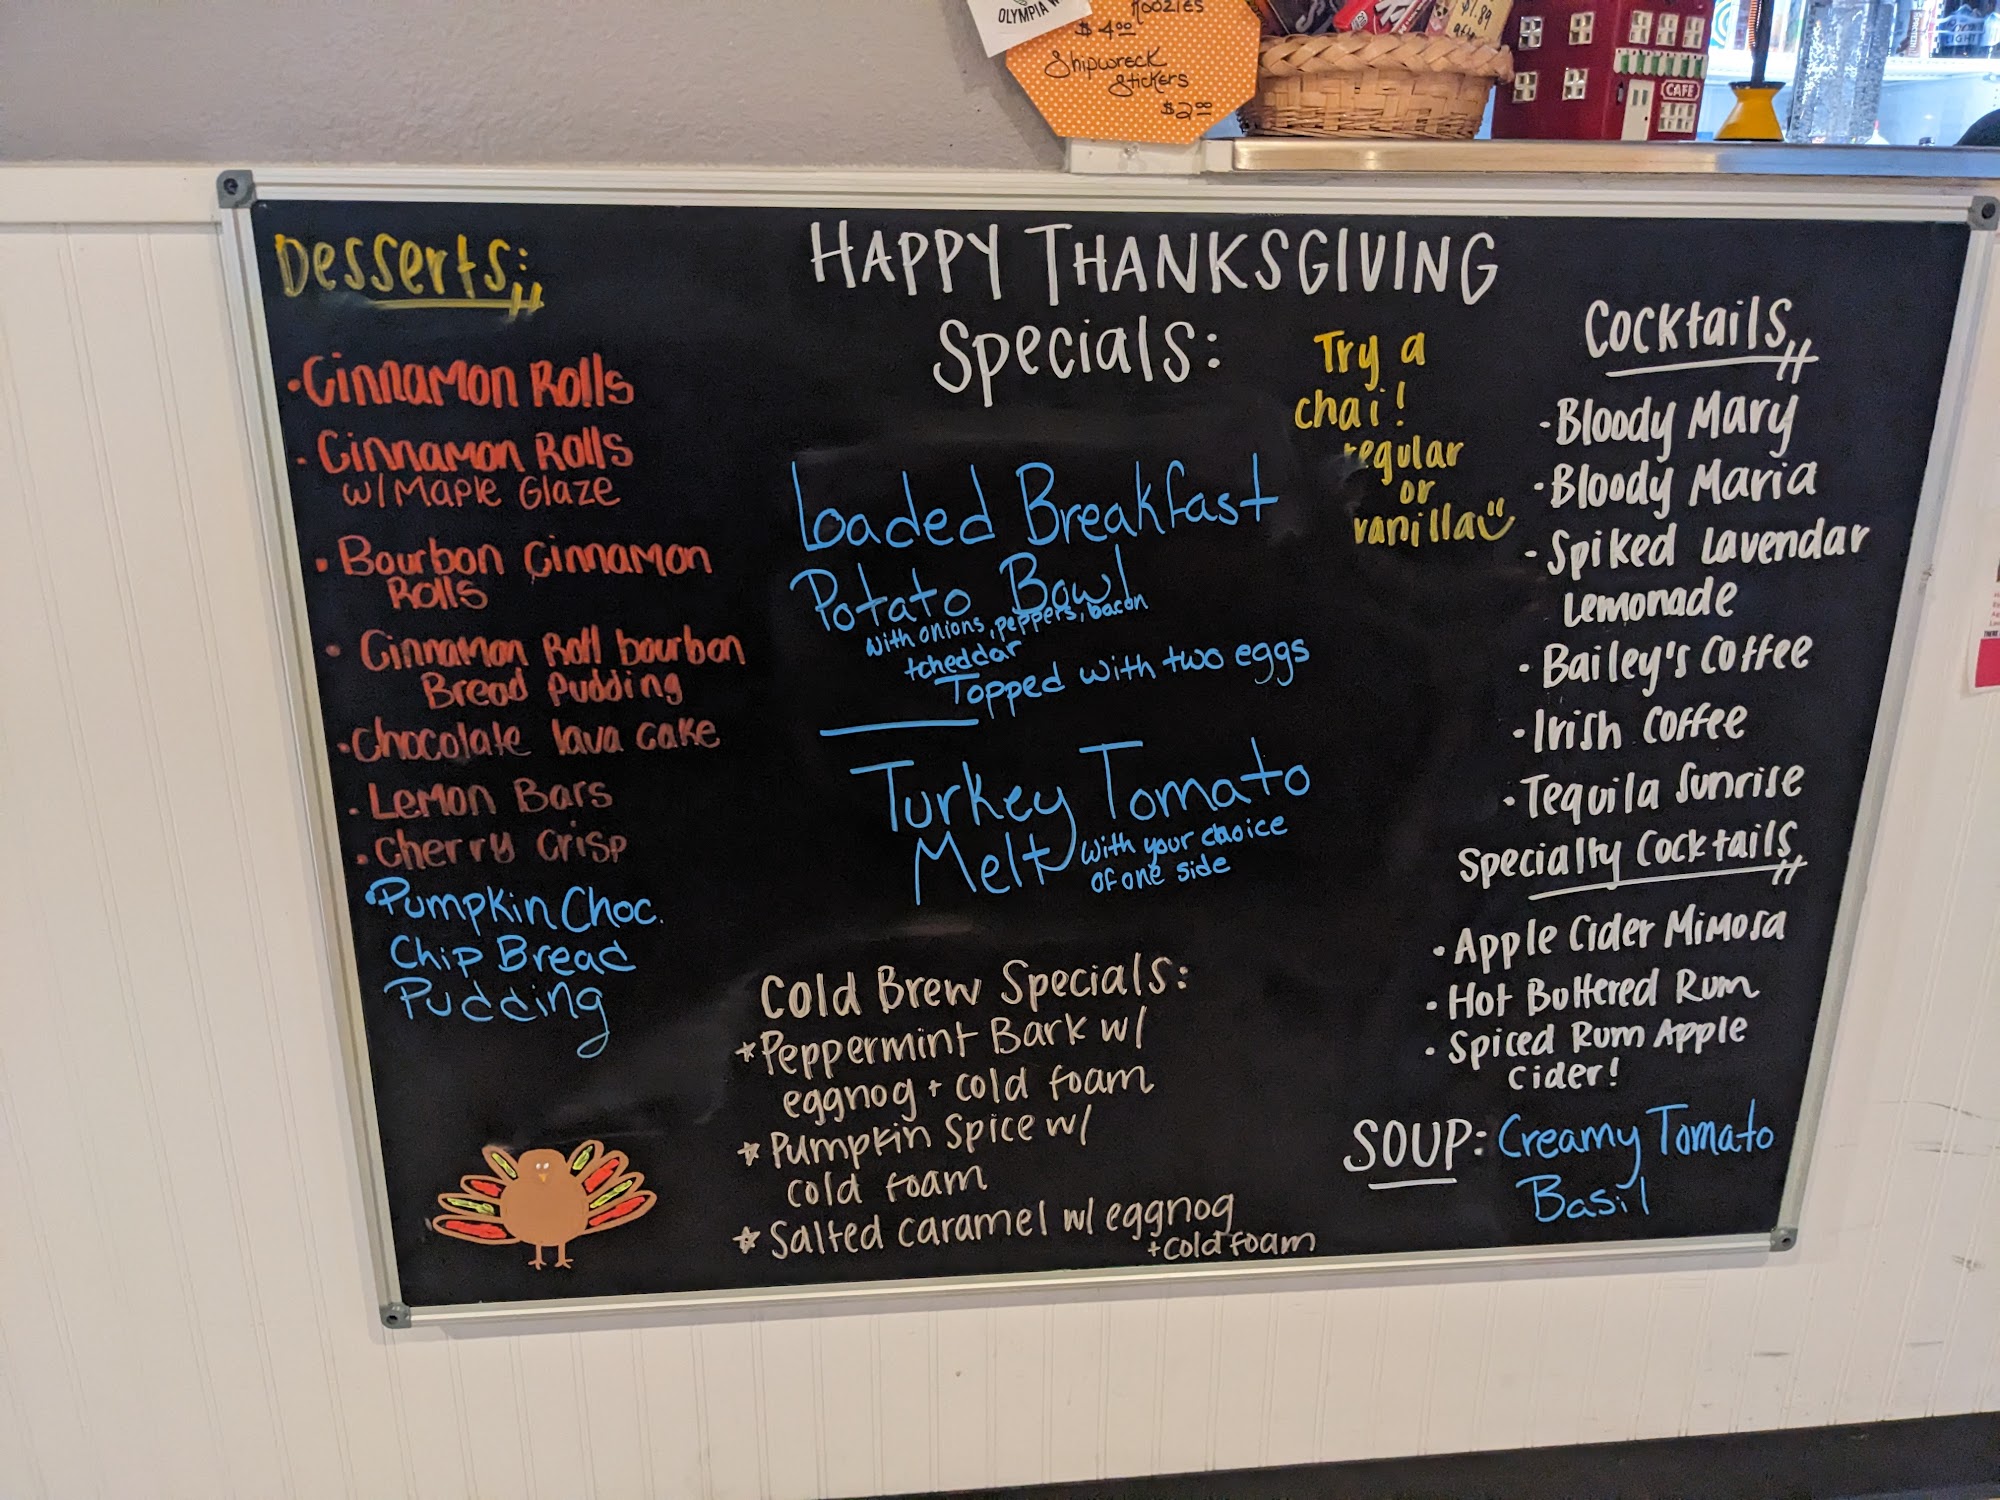 OLYMPIA
KOOZIES
$4.00
Shipwreck
Stickers
$2.00
$1.89
CAFE
Desserts:
• Cinnamon Rolls
• Cinnamon Rolls
w/ Maple Glaze
• Bourbon Cinnamon
Rolls
• Cinnamon Roll bourbon
Bread Pudding
• Chocolate lava cake
• Lemon Bars
• Cherry Crisp
• Pumpkin Choc.
Chip Bread
Pudding
HAPPY THANKSGIVING
Specials:
Loaded Breakfast
Potato Bowl
with onions, peppers, bacon
+cheddar
Topped with two eggs
Turkey Tomato
Melt with your choice
of one side
Try a
chai!
regular
or
vanilla
Cold Brew Specials:
* Peppermint Bark w/
eggnog + cold foam
* Pumpkin Spice w/
cold foam
* Salted caramel w/ eggnog
+cold foam
Cocktails
• Bloody Mary
• Bloody Maria
• Spiked Lavendar
Lemonade
• Bailey's Coffee
• Irish Coffee
• Tequila Sunrise
Specialty Cocktails
• Apple Cider Mimosa
• Hot Buttered Rum
• Spiced Rum Apple
Cider!
SOUP: Creamy Tomato
Basil